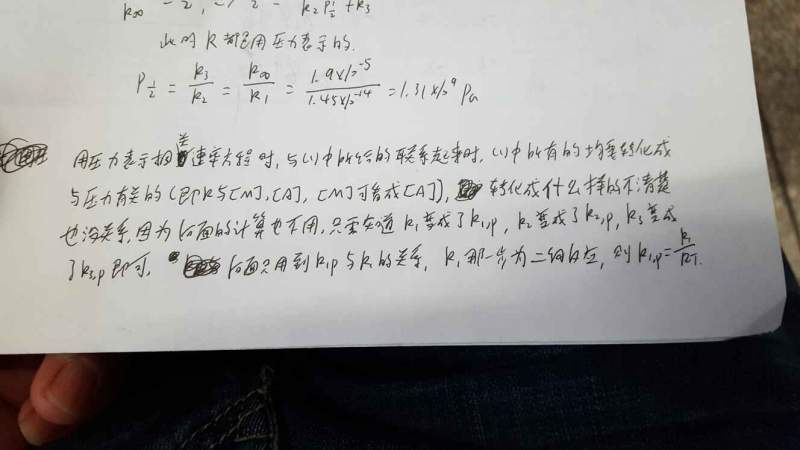 k∞ = 2, k₂P½+k₃
此时k都是用压力表示的.
P½ = k₃/k₂ = k∞/k₁ = 1.9×10⁻⁵/1.45×10⁻¹⁴ = 1.31×10⁹ Pa
用压力表示相关速率方程时,与(1)中所给的联系起来时,(1)中所有的均要转化成
与压力有关的(即k与[M],[A],[M]可替成[A]),转化成什么样的不清楚
也没关系,因为后面的计算也不用,只需知道k₁变成了k₁,p,k₂变成了k₂,p,k₃变成
了k₃,p即可.后面只用到k₁,p与k₁的关系,k₁那一步为二级反应,则k₁,p=k₁/RT.